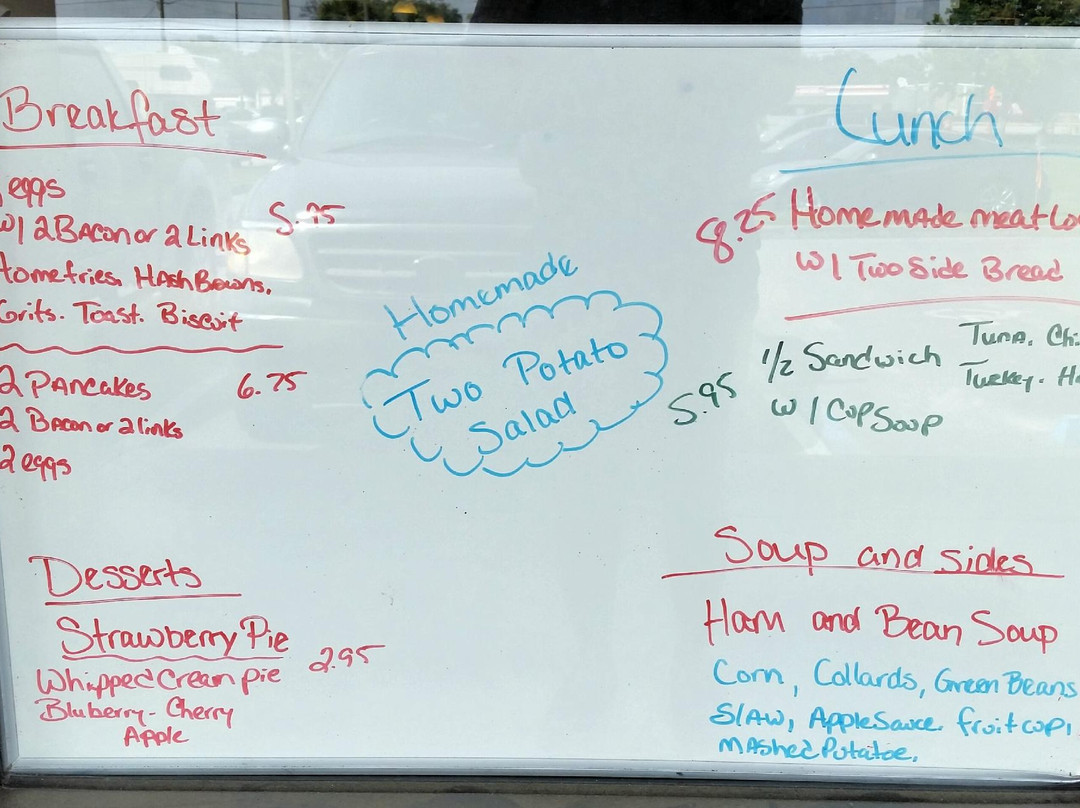 Breakfast
eggs
W/ 2 Bacon or 2 Links 5.95
Homefries. HashBowns.
Grits. Toast. Biscuit
2 PANcakes 6.75
2 Bacon or 2 links
2 eggs
Desserts
Strawberry Pie
Whipped Cream pie 2.95
Bluberry - Cherry
Apple
Homemade
Two Potato
Salad
Lunch
8.25 Homemade meatLo
W/ Two Side Bread
1/2 Sandwich Tuna. Chi
5.95 w/ Cup Soup Turkey. Ha
Soup and sides
Ham and Bean Soup
Corn, Collards, Green Beans
Slaw, AppleSauce. fruit cup,
Mashed Putatoe.